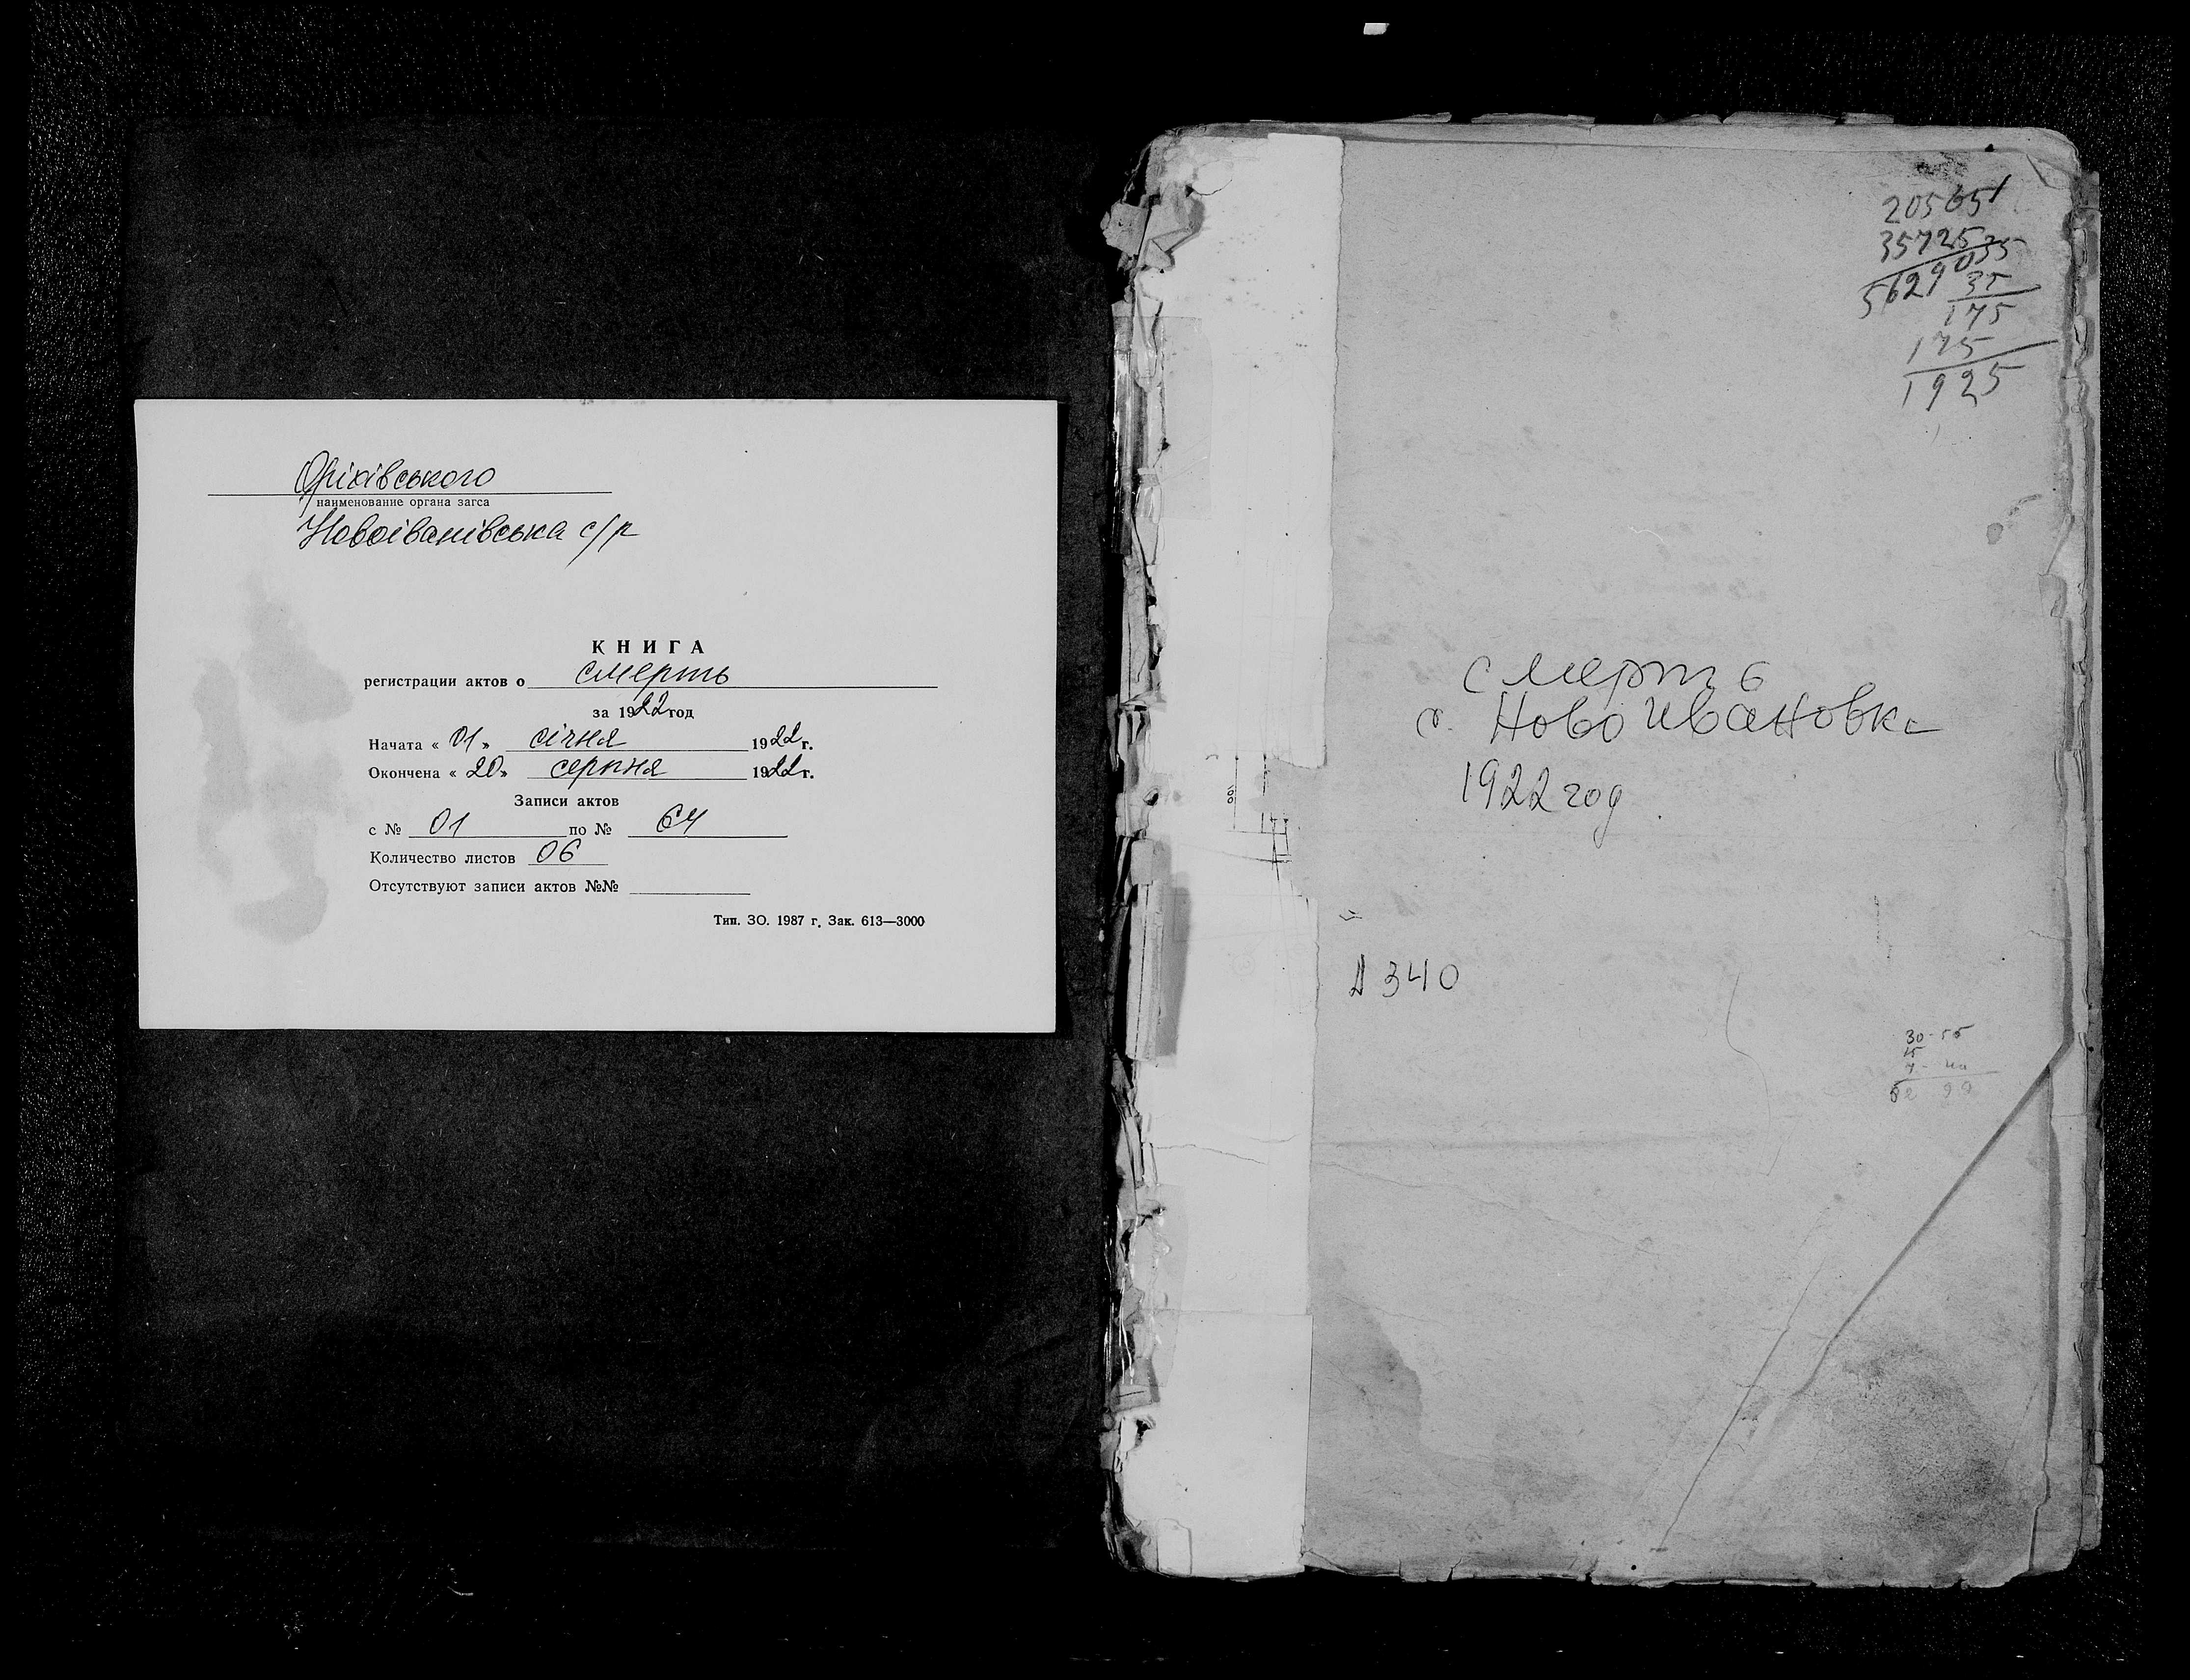 Оріхівського
наименование органа загса
Новоіванівська с/р
КНИГА
регистрации актов о смерть
за 1922 год
Начата « 01 » січня 1922 г.
Окончена « 20 » серпня 1922 г.
Записи актов
с № 01 по № 64
Количество листов 06
Отсутствуют записи актов №№
Тип. ЗО. 1987 г. Зак. 613—3000
205651
35725
5629035
35
175
175
1925
смерть
с. Ново Ивановка
1922 год
340
30-55